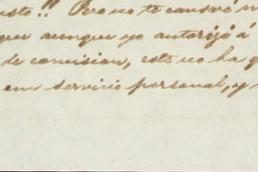 esto!! Pero no te causará
que aunque yo autorizó á
de comision, esto no ha
em servicio personal, y